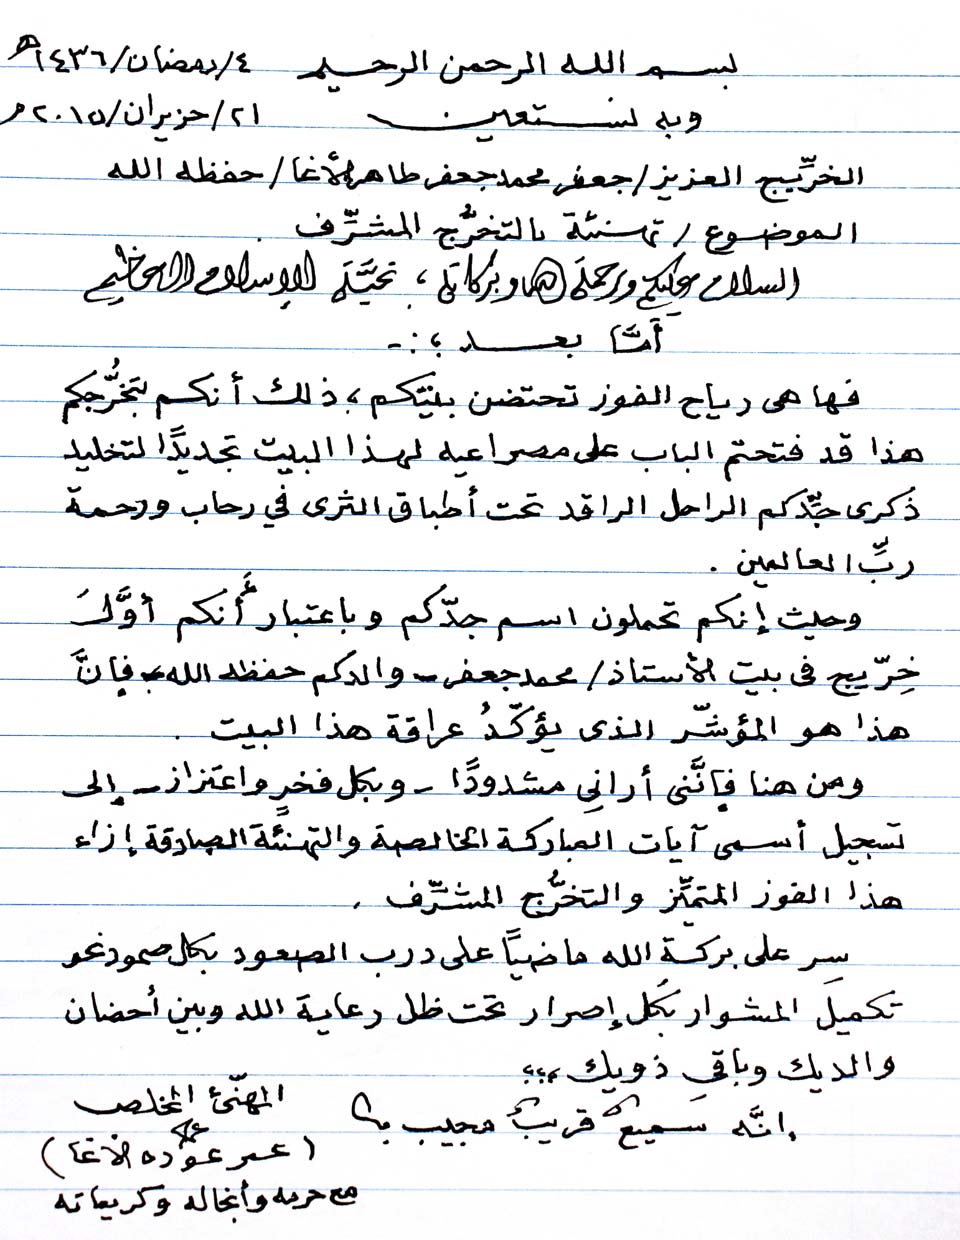 بسم الله الرحمن الرحيم ٤/رمضان/١٤٣٦هـ
وبه نستعين ٢١/حزيران/٢٠١٥م
الخرِّيج العزيز/جعفر محمد جعفر طاهر الأغا/حفظه الله
الموضوع/تهنئة بالتخرُّج المشرِّف.
السلام عليكم ورحمة الله وبركاته، تحيَّة الإسلام العظيم
أمَّا بعد؛:-
فها هى رياح الفوز تحتضن بيتكم، ذلك أنكم بتخرُّجكم
هذا قد فتحتم الباب على مصراعيه لهذا البيت تجديدًا لتخليد
ذكرى جدِّكم الراحل الراقد تحت أطباق الثرى في رحاب ورحمة
ربِّ العالمين.
وحيث إنكم تحملون اسم جدّكم وباعتبار أنكم أوَّلَ
خِرّيج فى بيت الأستاذ/محمد جعفر - والدكم حفظه الله - فإنَّ
هذا هو المؤشّر الذى يؤكّدُ عراقة هذا البيت.
ومن هنا فإنَّنى أرانى مشدودًا - وبكل فخرٍ واعتزاز - إلى
تسجيل أسمى آيات المباركة الخالصة والتهنئة الصادقة إزاء
هذا الفوز المتميِّز والتخرُّج المشرِّف.
سِر على بركة الله ماضيًا على درب الصعود بكل صمود نحو
تكميل المشوار بكل إصرار تحت ظل رعاية الله وبين أحضان
والديك وباقي ذويك،،،
إنَّه سميعٌ قريبٌ مجيب
المهنّئ المخلص
(عمر عوده الأغا)
مع حرمه وأنجاله وكريماته